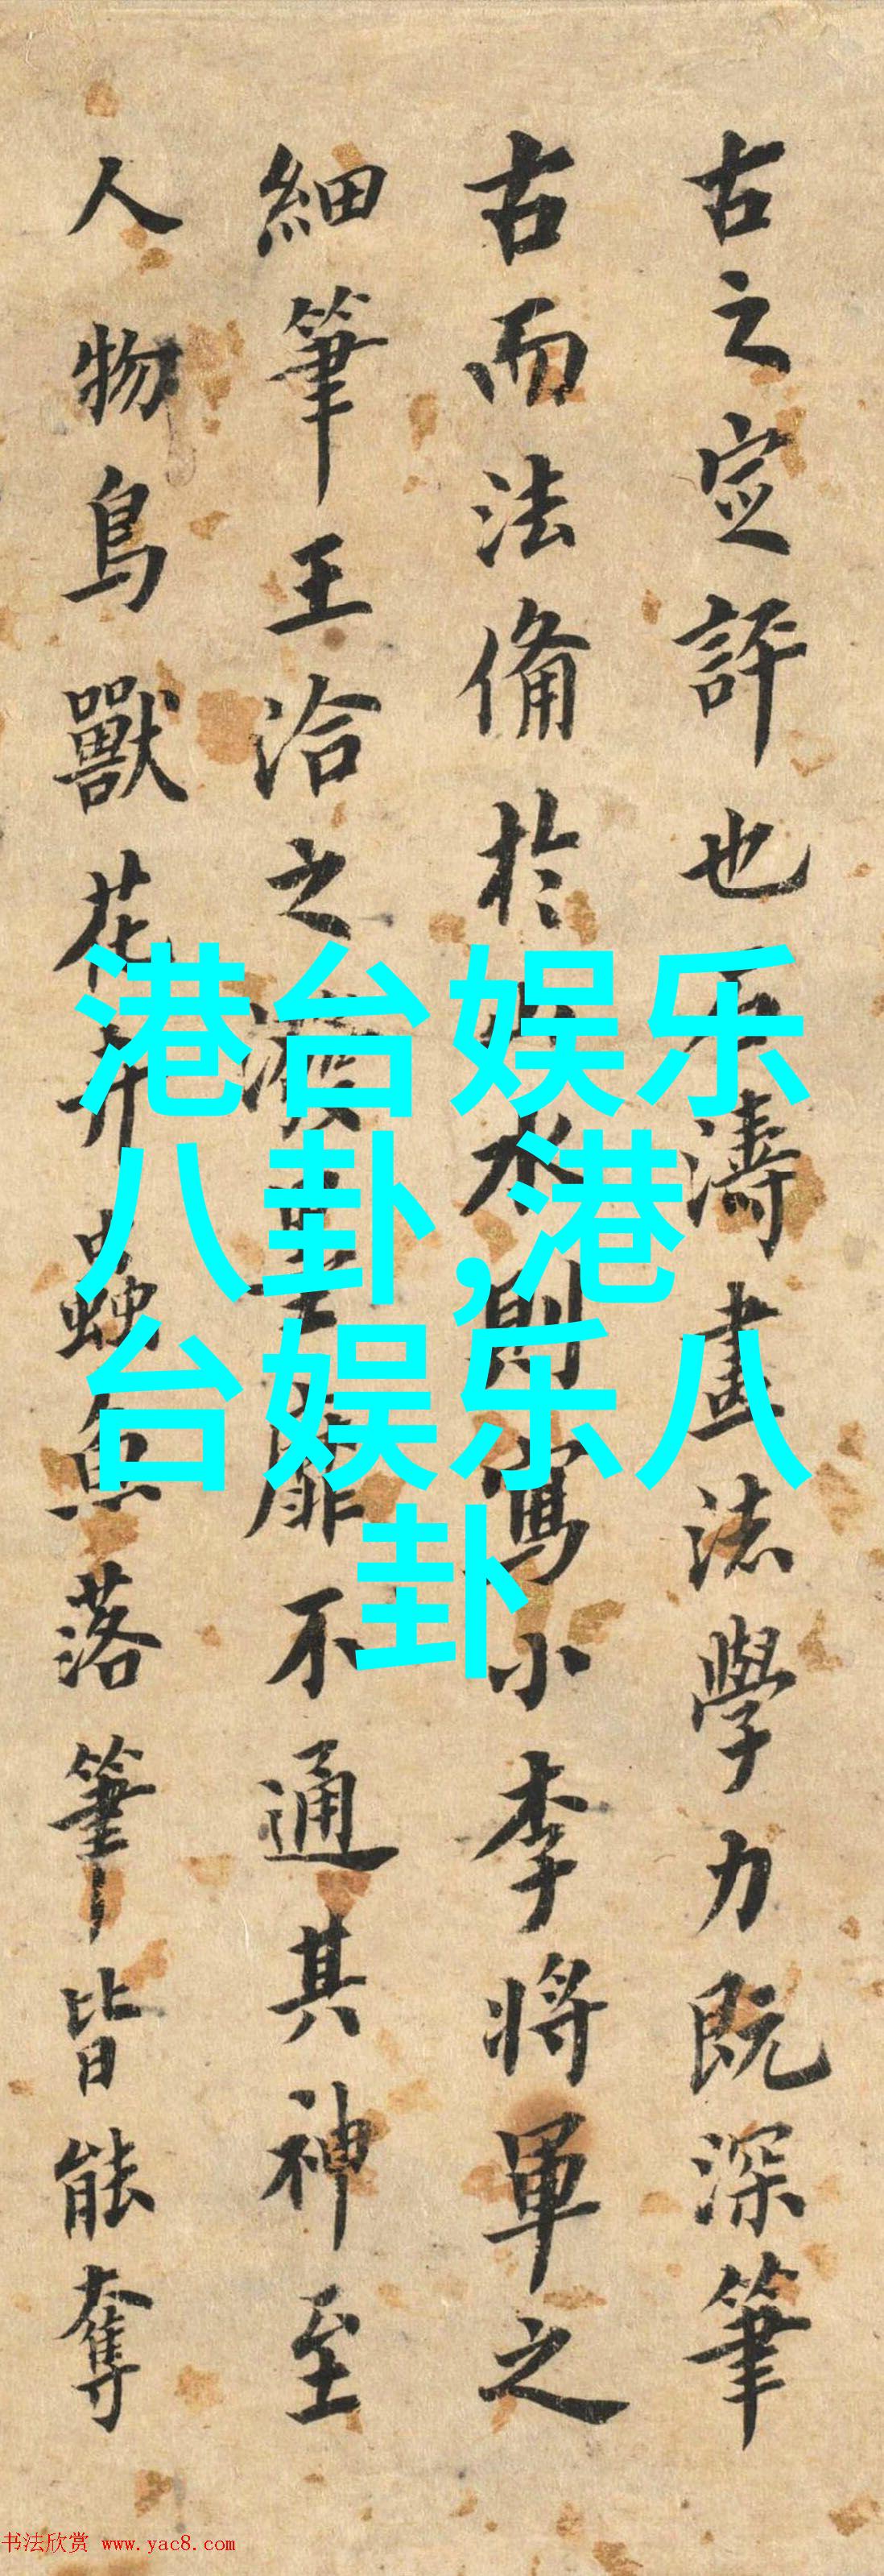 古之定評也石濤畫法學力既深筆
古而法備於山水則寫小李將軍之
細筆王洽之潑墨靡不通其神至
人物鳥獸花卉蟲魚落筆皆能奪
港台娱乐
八卦,港
台娱乐八
卦
书法欣赏 www.yac8.com